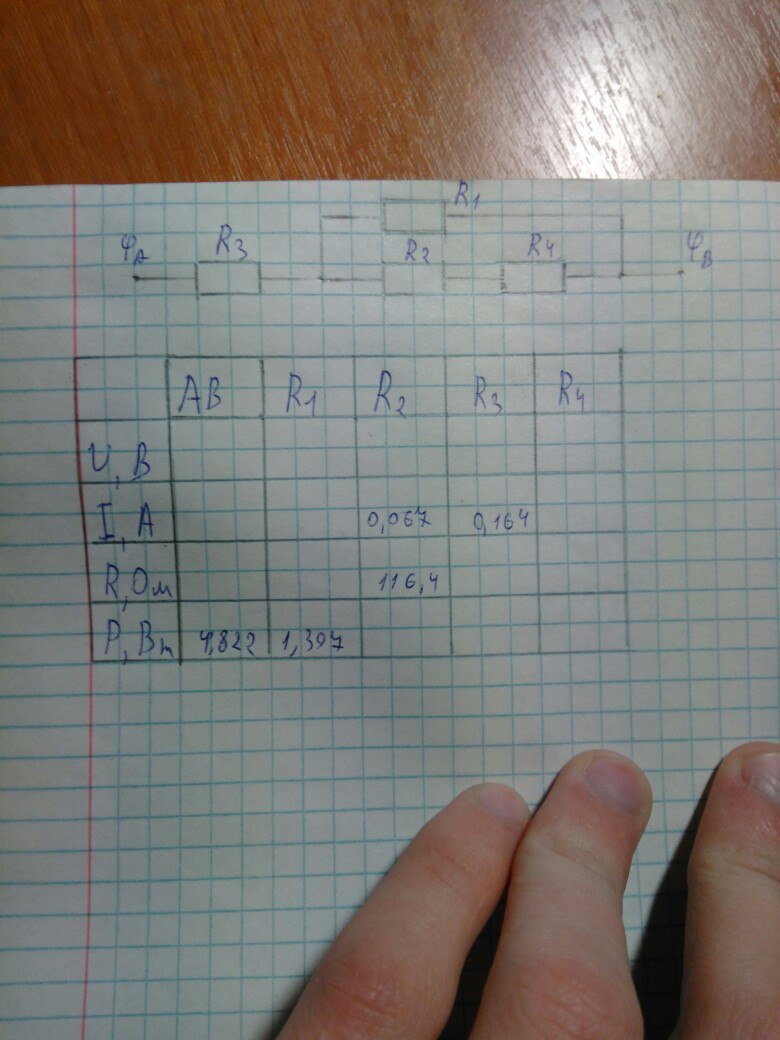 R1
φA R3 R2 R4 φB
AB R1 R2 R3 R4
U, В
I, А 0,067 0,164
R, Ом 116,4
P, Вт 4,822 1,397